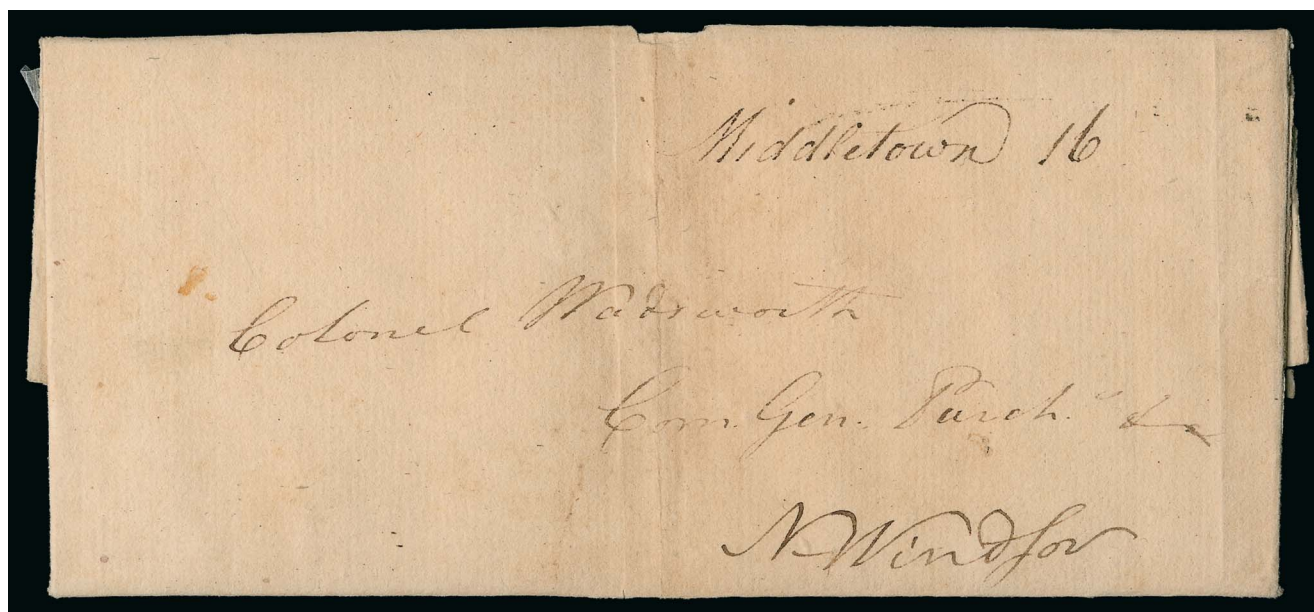 Middletown 16
Colonel Wadsworth
Com. Gen. Purch.ˢ &c
N. Windsor